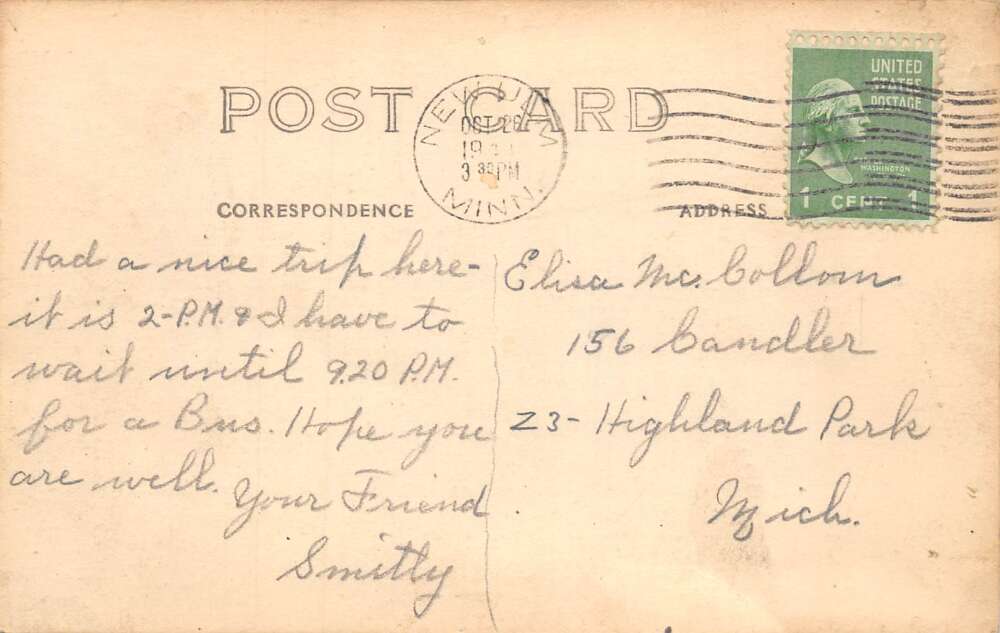 POST CARD
NEW ULM
OCT 26
19
3 30 PM
MINN.
UNITED
STATES
POSTAGE
WASHINGTON
1 CENT 1
CORRESPONDENCE
ADDRESS
Had a nice trip here-
it is 2-P.M. & I have to
wait until 9.20 P.M.
for a Bus. Hope you
are well.
Your Friend
Smitty
Elisa Mc. Collom
156 Candler
23- Highland Park
Mich.